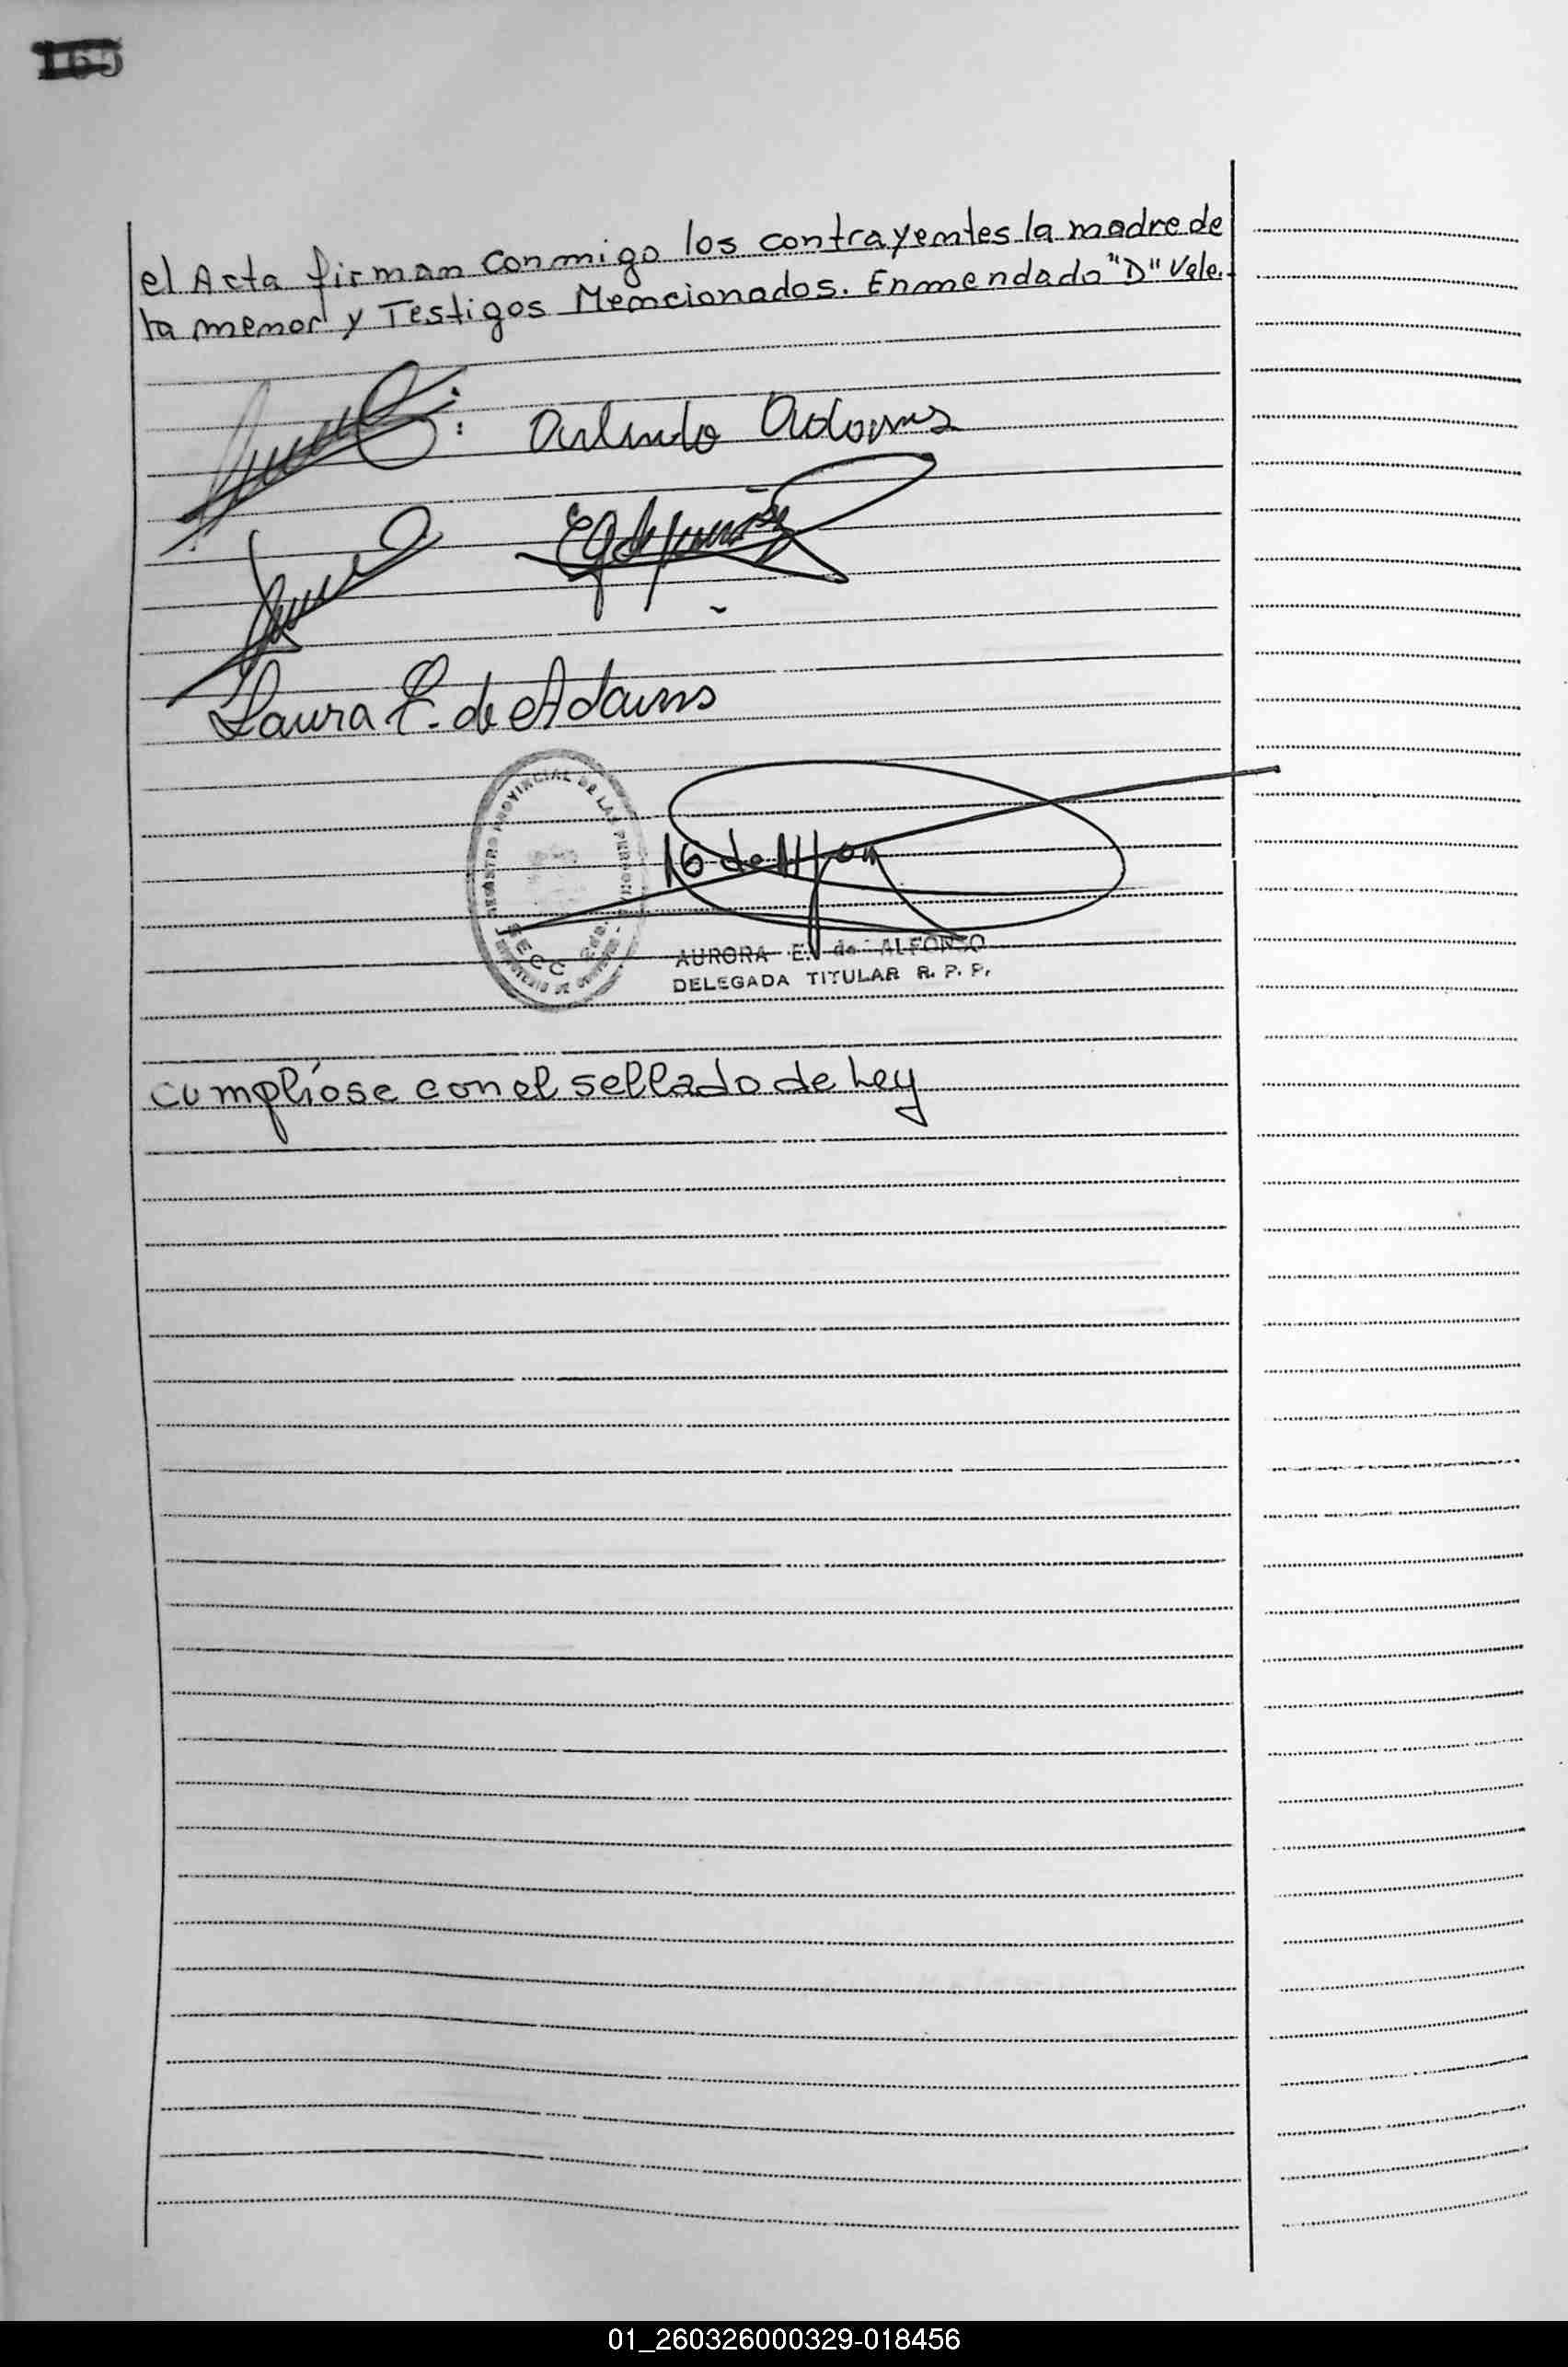 165
el Acta firman conmigo los contrayentes la madre de
la menor y Testigos Mencionados. Enmendado "D" Vale.
Arlindo Adams
Laura E. de Adams
REGISTRO PROVINCIAL DE LAS PERSONAS
SECC 2da.
AURORA E. de ALFONZO
DELEGADA TITULAR R. P. P.
cumplíose con el sellado de Ley
01_260326000329-018456